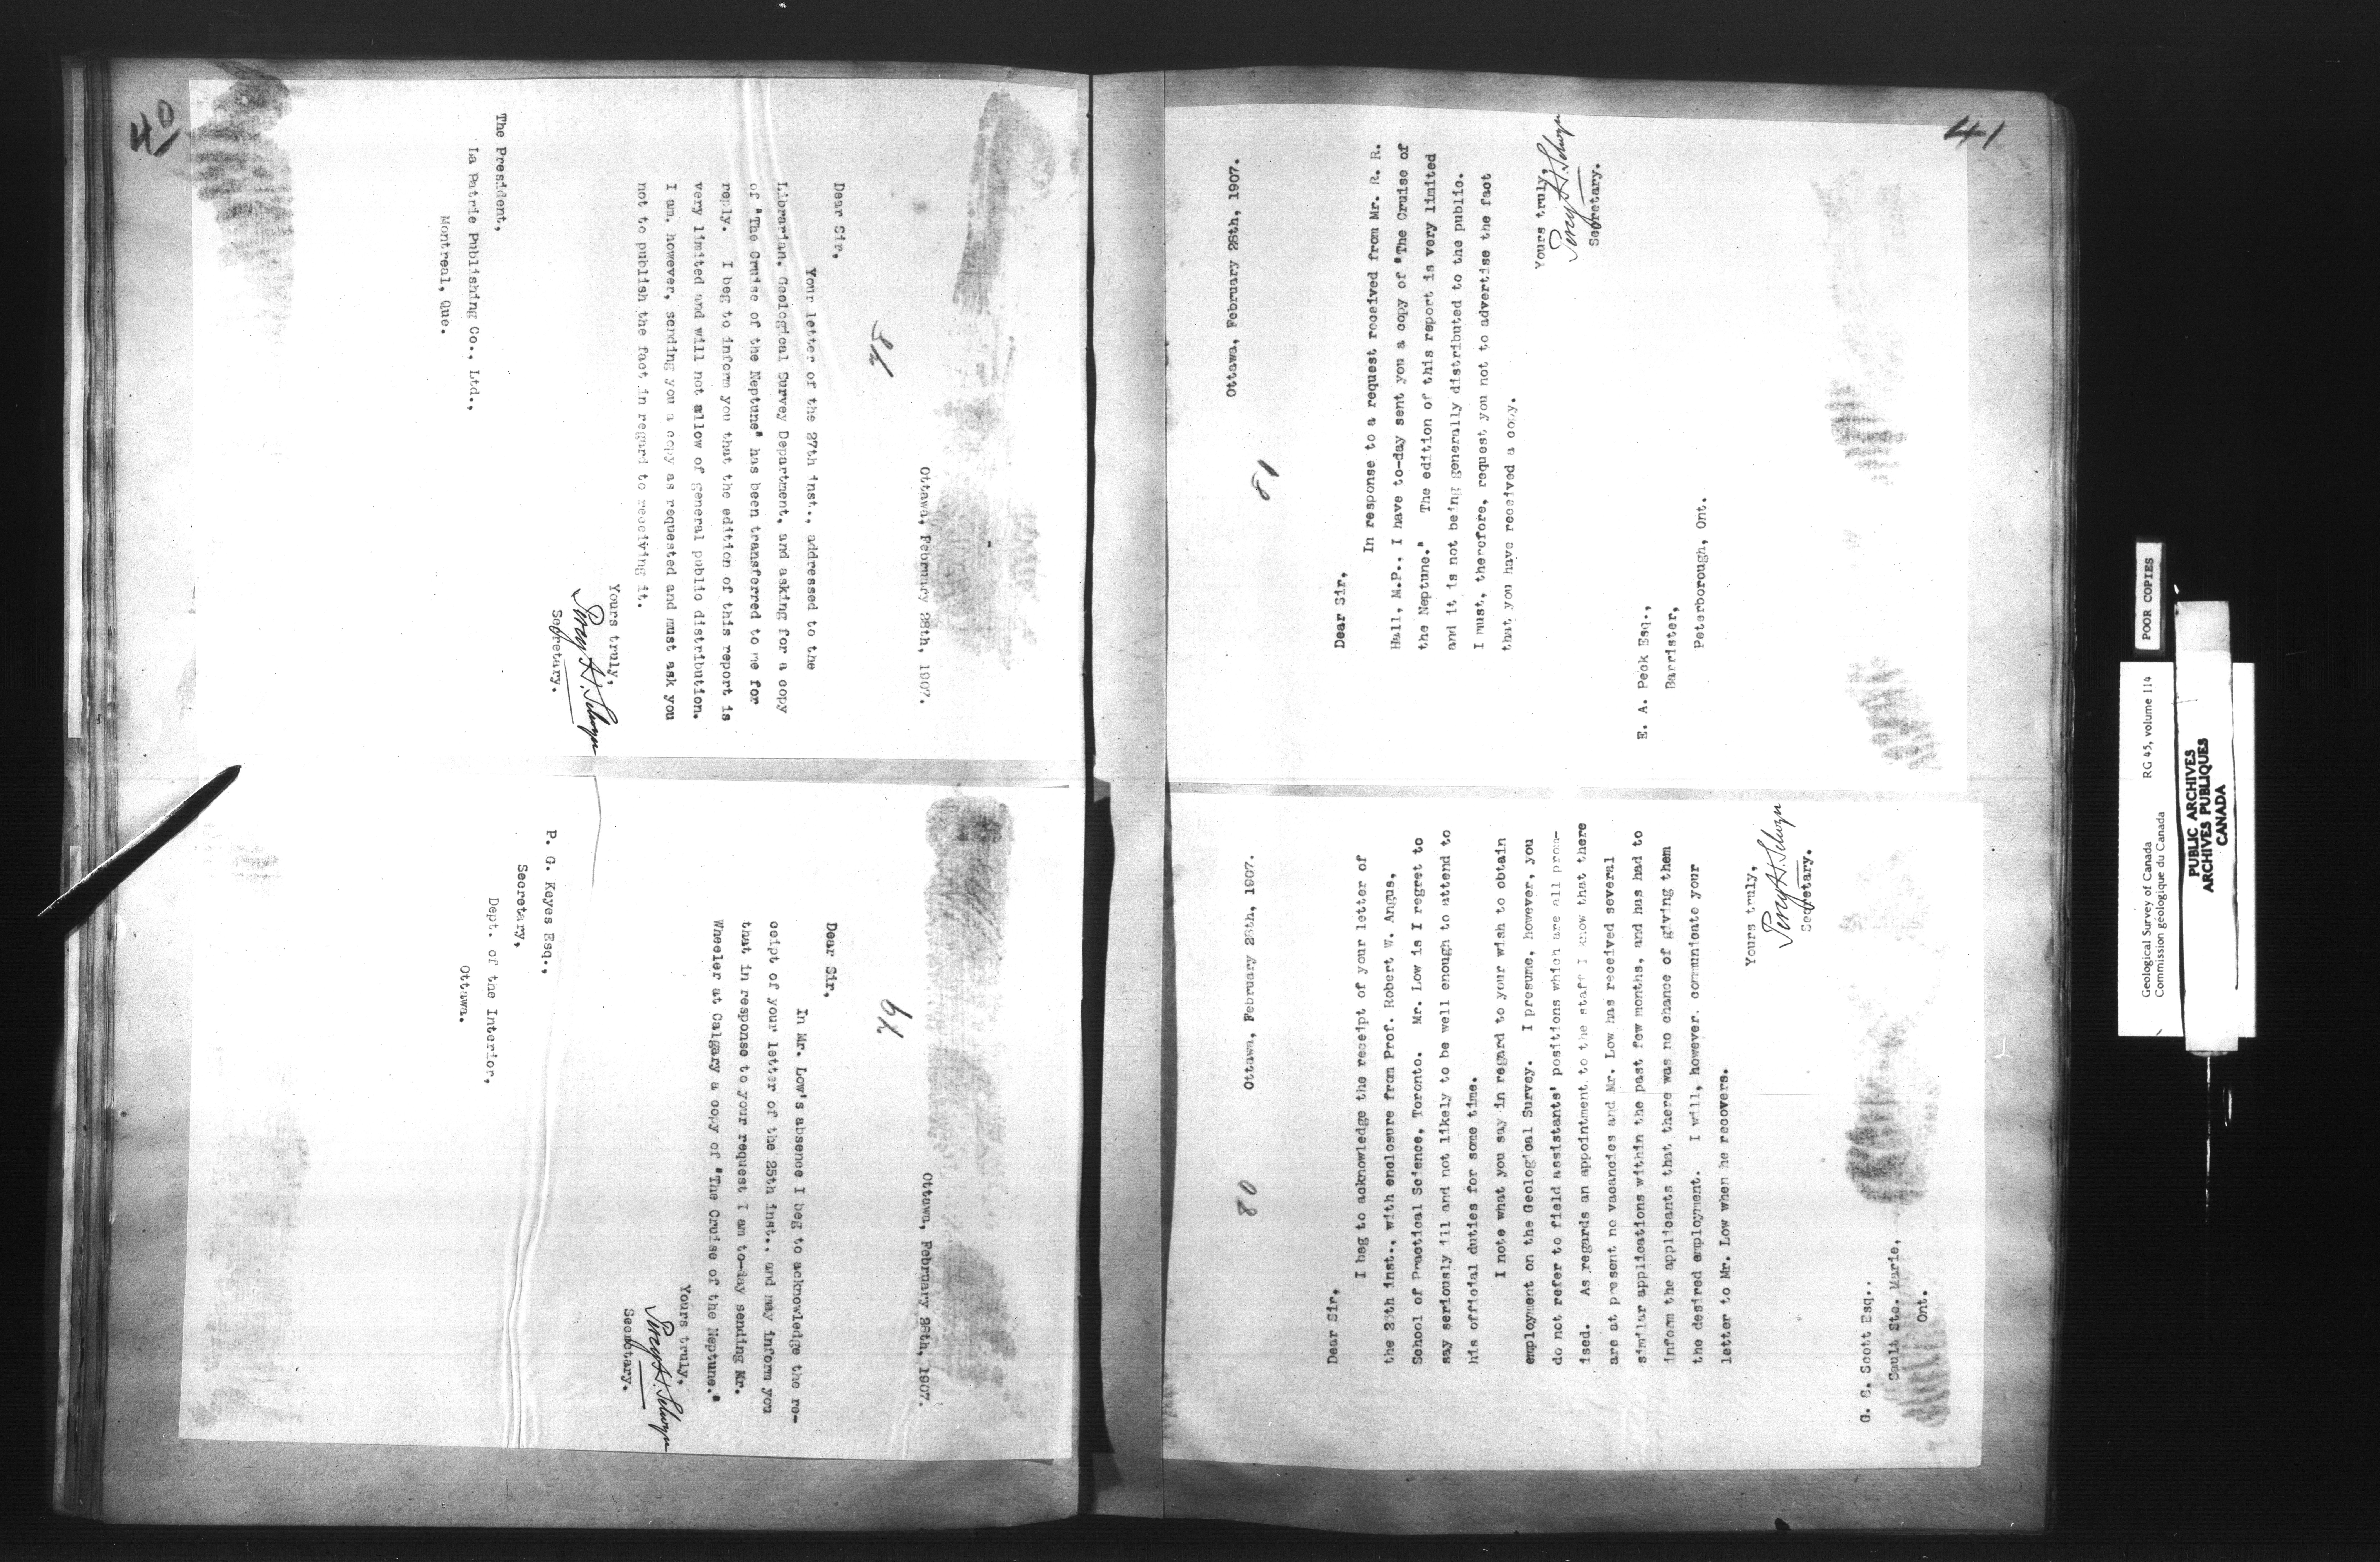 40
78
Ottawa, February 28th, 1907.
Dear Sir,
Your letter of the 27th inst., addressed to the
Librarian, Geological Survey Department, and asking for a copy
of "The Cruise of the Neptune" has been transferred to me for
reply. I beg to inform you that the edition of this report is
very limited and will not allow of general public distribution.
I am, however, sending you a copy as requested and must ask you
not to publish the fact in regard to receiving it.
Yours truly,
Percy H. Selwyn
Secretary.
The President,
La Patrie Publishing Co., Ltd.,
Montreal, Que.
79
Ottawa, February 28th, 1907.
Dear Sir,
In Mr. Low's absence I beg to acknowledge the re-
ceipt of your letter of the 25th inst., and may inform you
that in response to your request I am to-day sending Mr.
Wheeler at Calgary a copy of "The Cruise of the Neptune."
Yours truly,
Percy H. Selwyn
Secretary.
P. G. Keyes Esq.,
Secretary,
Dept. of the Interior,
Ottawa.
41
80
Ottawa, February 28th, 1907.
Dear Sir,
I beg to acknowledge the receipt of your letter of
the 26th inst., with enclosure from Prof. Robert W. Angus,
School of Practical Science, Toronto. Mr. Low is I regret to
say seriously ill and not likely to be well enough to attend to
his official duties for some time.
I note what you say in regard to your wish to obtain
employment on the Geological Survey. I presume, however, you
do not refer to field assistants' positions which are all prom-
ised. As regards an appointment to the staff I know that there
are at present no vacancies and Mr. Low has received several
similar applications within the past few months, and has had to
inform the applicants that there was no chance of giving them
the desired employment. I will, however, communicate your
letter to Mr. Low when he recovers.
Yours truly,
Percy H. Selwyn
Secretary.
G. S. Scott Esq.,
Sault Ste. Marie,
Ont.
81
Ottawa, February 28th, 1907.
Dear Sir,
In response to a request received from Mr. R. R.
Hall, M.P., I have to-day sent you a copy of "The Cruise of
the Neptune." The edition of this report is very limited
and it is not being generally distributed to the public.
I must, therefore, request you not to advertise the fact
that you have received a copy.
Yours truly,
Percy H. Selwyn
Secretary.
E. A. Peck Esq.,
Barrister,
Peterborough, Ont.
POOR COPIES
Geological Survey of Canada RG 45, volume 114
Commission géologique du Canada
PUBLIC ARCHIVES
ARCHIVES PUBLIQUES
CANADA